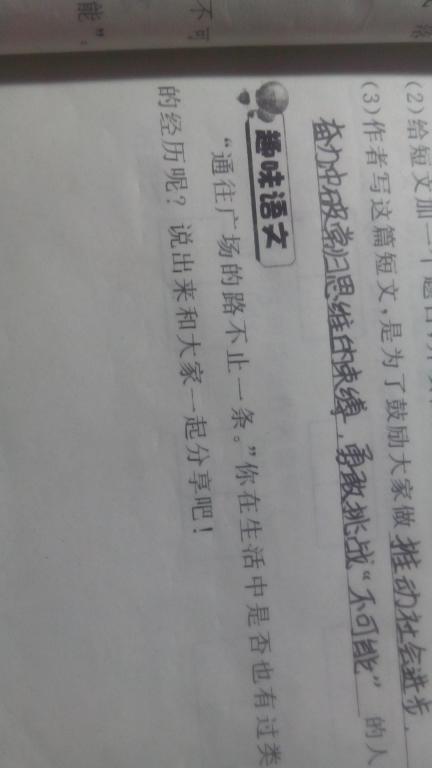 不可
能”
(2)给短文加
(3)作者写这篇短文,是为了鼓励大家做推动社会进步,
奋力冲破常归思维的束缚,勇敢挑战“不可能”的人
趣味语文
“通往广场的路不止一条。”你在生活中是否也有过类
的经历呢?说出来和大家一起分享吧!